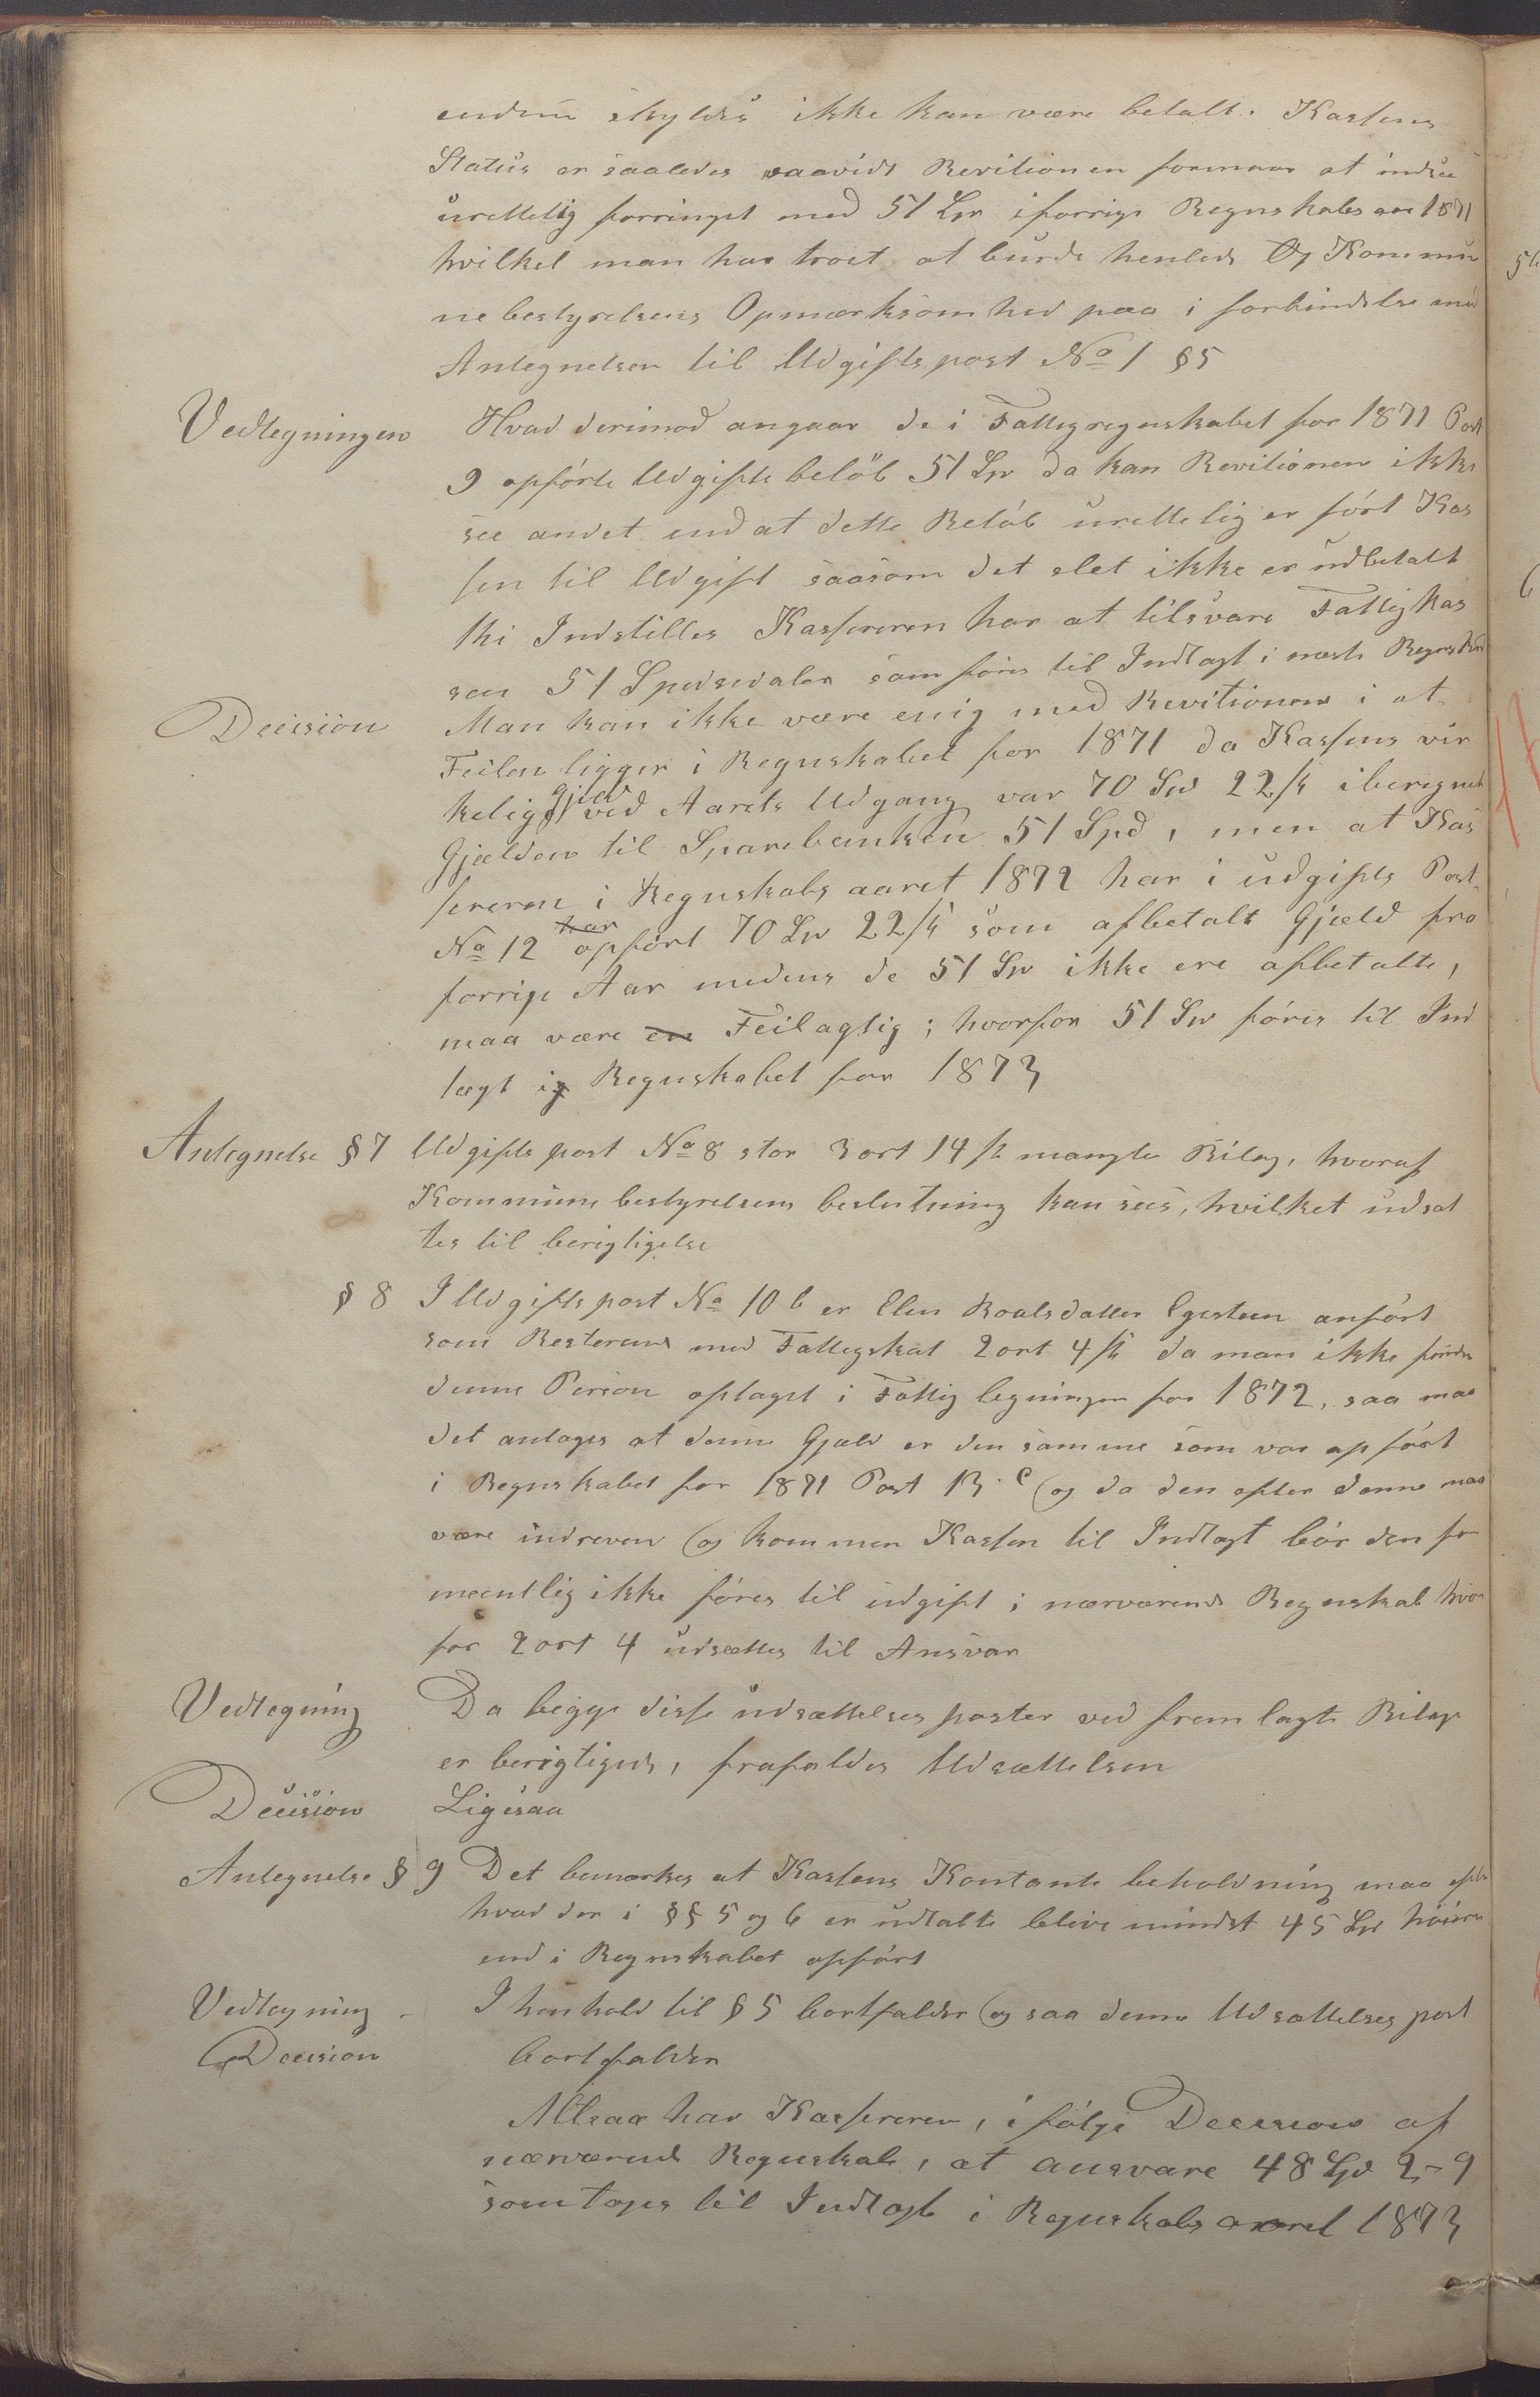 endnu skyldes ikke kan være betalt. Kassens
Status er saaledes saavidt Revitionen formaar at indsee
urettelig forringet med 51 Spd i forrige Regnskabsaar 1871
hvilket man har troet at burde henlede Kommu
nebestyrelsens Opmærksomhed paa i forbindelse med
Antegnelsen til Udgiftspost No 1 § 5
Vedtegningen Hvad derimod angaar de i Fattigregnskabet for 1871 Post
9 opførte Udgifts beløb 51 Spd da kan Revitionen ikke
see andet end at dette Beløb urettelig er ført Kas
sen til Udgift saasom det slet ikke er udbetalt
thi Indstilles Kassereren har at tilsvare Fattigkas
sen 51 Speciedaler som føres til Indtægt i næste Regnskab
Decision Man kan ikke være enig med Revitionen i at
Feilen ligger i Regnskabet for 1871 da Kassens vir
kelige Gjæld ved Aarets Udgang var 70 Spd 22 s iberegnet
Gjælden til Sparebanken 51 Spd, men at Kas
sereren i Regnskabsaaret 1872 har i udgifts Post
No 12 har opført 70 Spd 22 s som afbetalt Gjæld fra
forrige Aar medens de 51 Spd ikke ere afbetalte,
maa være en Feilagtig; hvorfor 51 Spd føres til Ind
tægt i Regnskabet for 1873
Antegnelse § 7 Udgiftspost No 8 stor 3 ort 14 s mangler Bilag, hvoraf
Kommunebestyrelsens beslutning kan sees, hvilket udsæt
tes til berigtigelse
§ 8 I Udgiftspost No 10 b er Elen Roalsdatter Egesteen anført
som Resterende med Fattigskat 2 ort 4 s da man ikke finder
denne Person optaget i Fattig legningen for 1872, saa maa
det antages at denne Gjæld er den samme som var opført
i Regnskabet for 1871 Post 13. c og da den efter denne maa
være indreven og kommen Kassen til Indtægt bør den for
mentlig ikke føres til udgift i nærværende Regnskab hvor
for 2 ort 4 udsættes til Ansvar
Vedtegning Da begge disse udsættelses poster ved fremlagte Bilage
er berigtigede, frafaldes Udsættelsen
Decision Ligesaa
Antegnelse § 9 Det bemærkes at Kassens Kontante beholdning maa efter
hvad der i §§ 5 og 6 er udtalte blive mindst 45 Spd høiere
end i Regnskabet opført
Vedtegning I henhold til § 5 bortfalder og saa denne Udsættelses post
Decision bortfalder
Altsaa har Kassereren, ifølge Decision af
nærværende Regnskab, at ansvare 48 Spd 2 - 9
som tages til Indtægt i Regnskabsaaret 1873